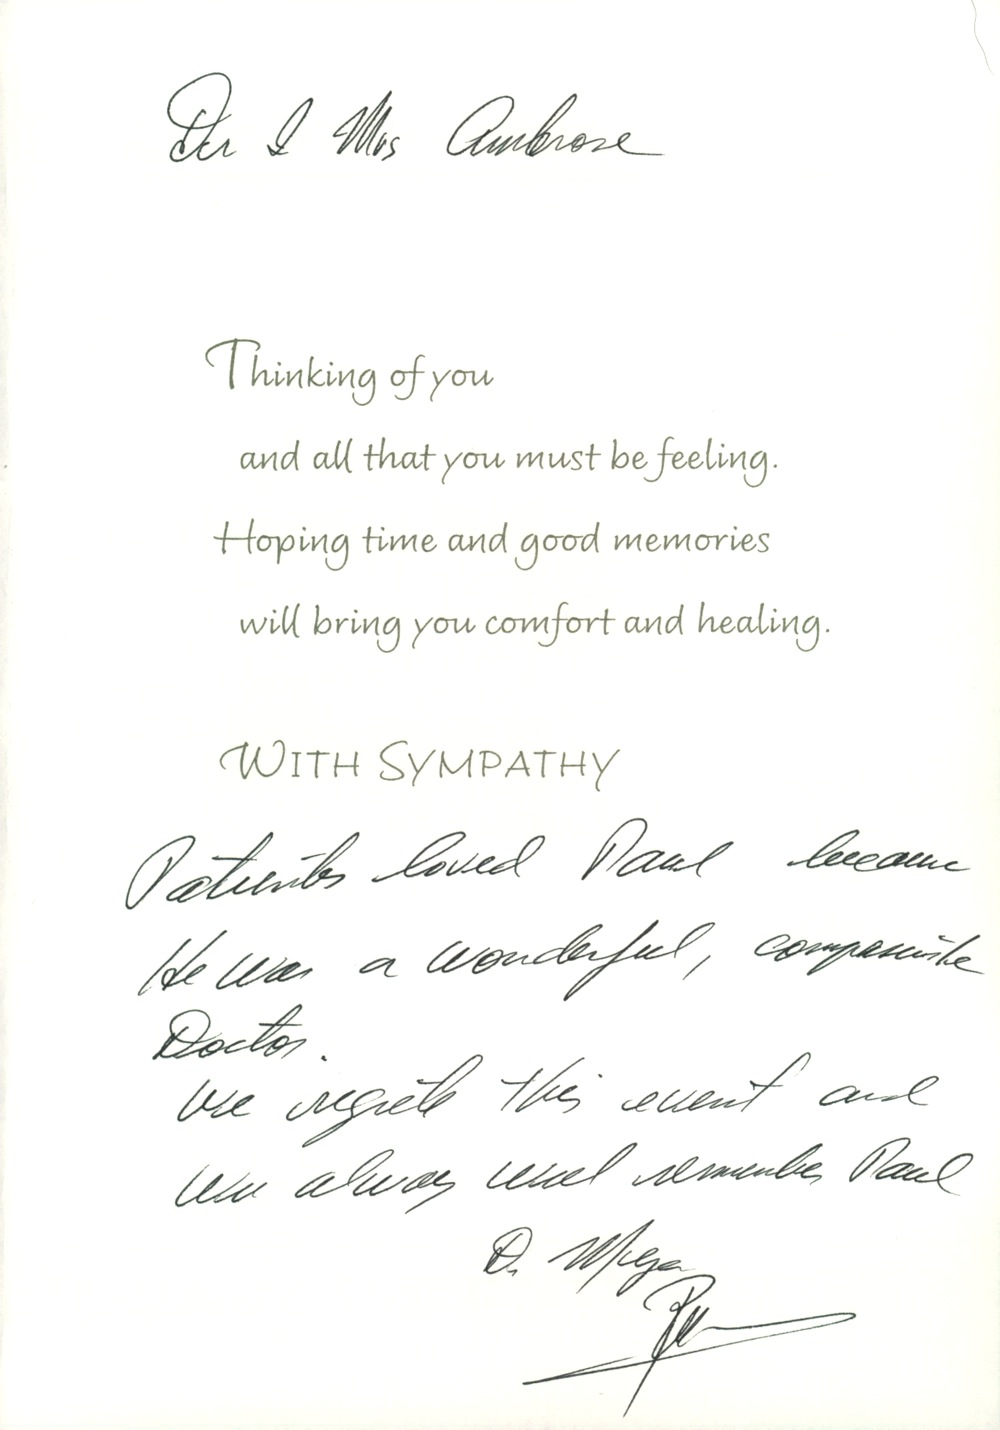 Dr & Mrs Ambrose
Thinking of you
and all that you must be feeling.
Hoping time and good memories
will bring you comfort and healing.
WITH SYMPATHY
Patients loved Paul because
He was a wonderful, compassionate
Doctor.
We regrets this event and
We always will remember Paul
D.